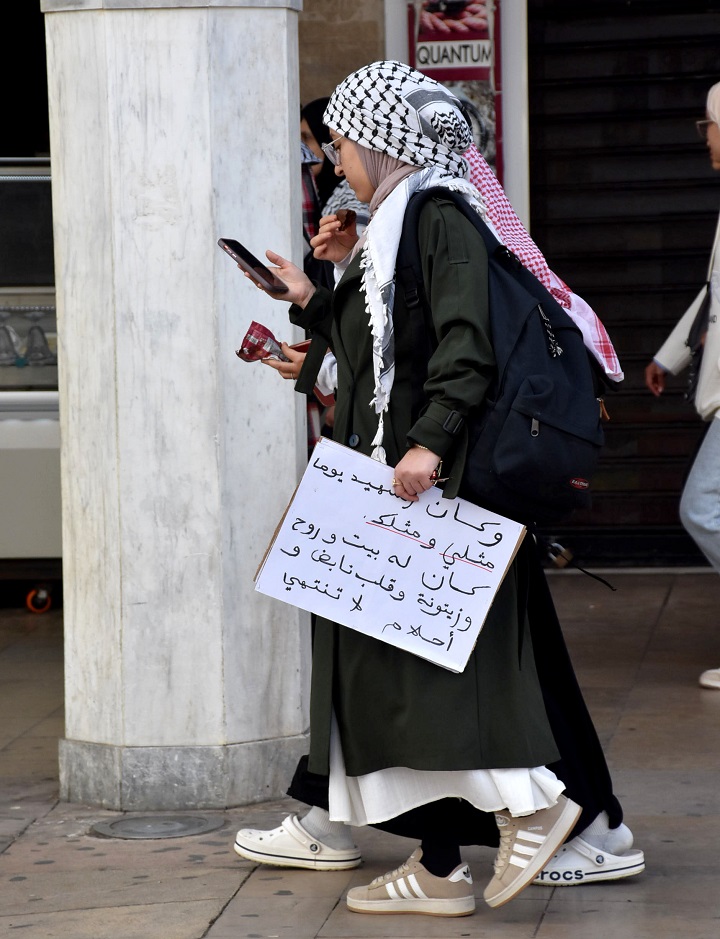 QUANTUM
وكان الشهيد يوما
مثلي ومثلك
كان له بيت وروح
وزيتونة وقلب نابض و
أحلام لا تنتهي
EASTPAK
crocs